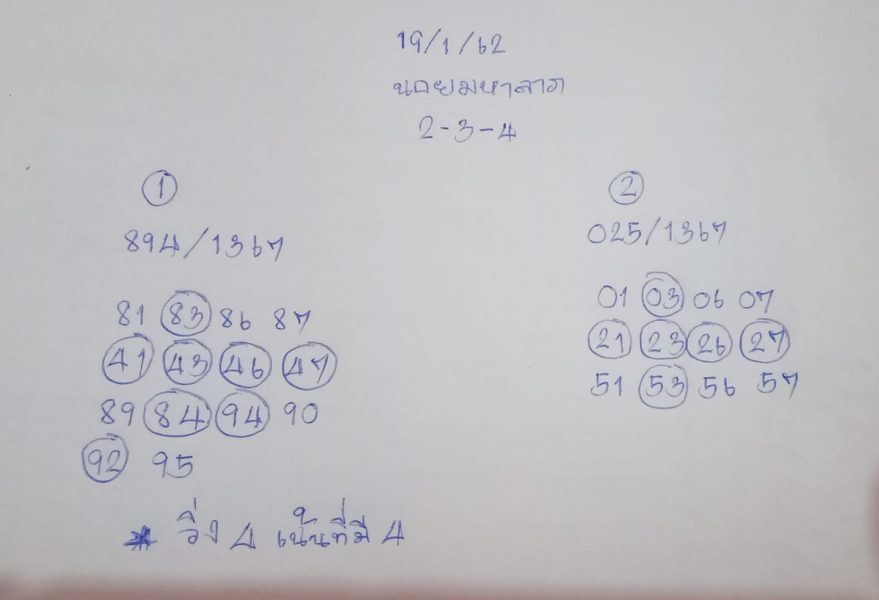 19/1/62
นอยมหาลาภ
2-3-4
1
894/1367
81 83 86 87
41 43 46 47
89 84 94 90
92 95
2
025/1367
01 03 06 07
21 23 26 27
51 53 56 57
* วิ่ง 4 เน้นที่มี 4